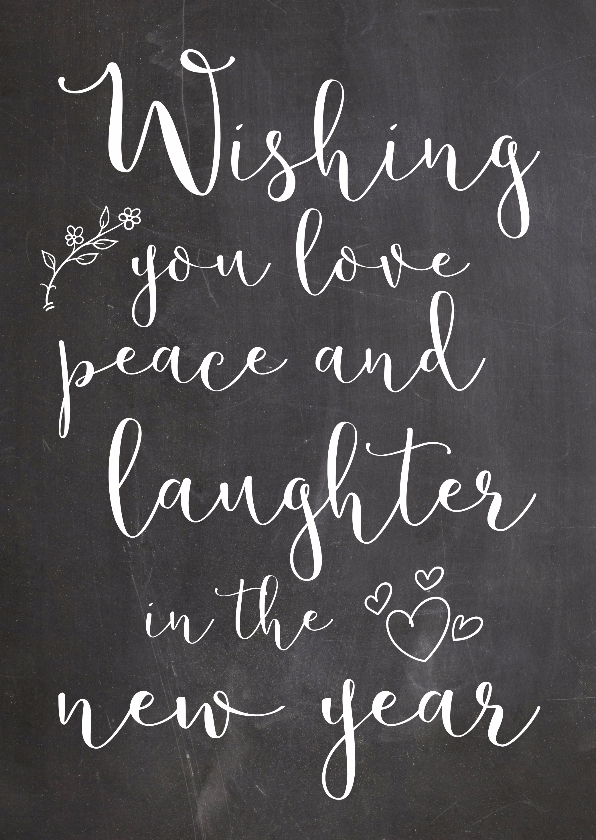 Wishing
you love
peace and
laughter
in the
new year